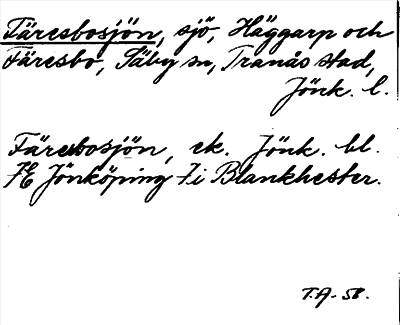 Färesbosjön, sjö, Häggarp och
Färesbo, Säby sn, Tranås stad,
Jönk. l.
Färesbosjön, ek. Jönk. bl.
7E Jönköping 7i Blankhester.
T.A. 58.